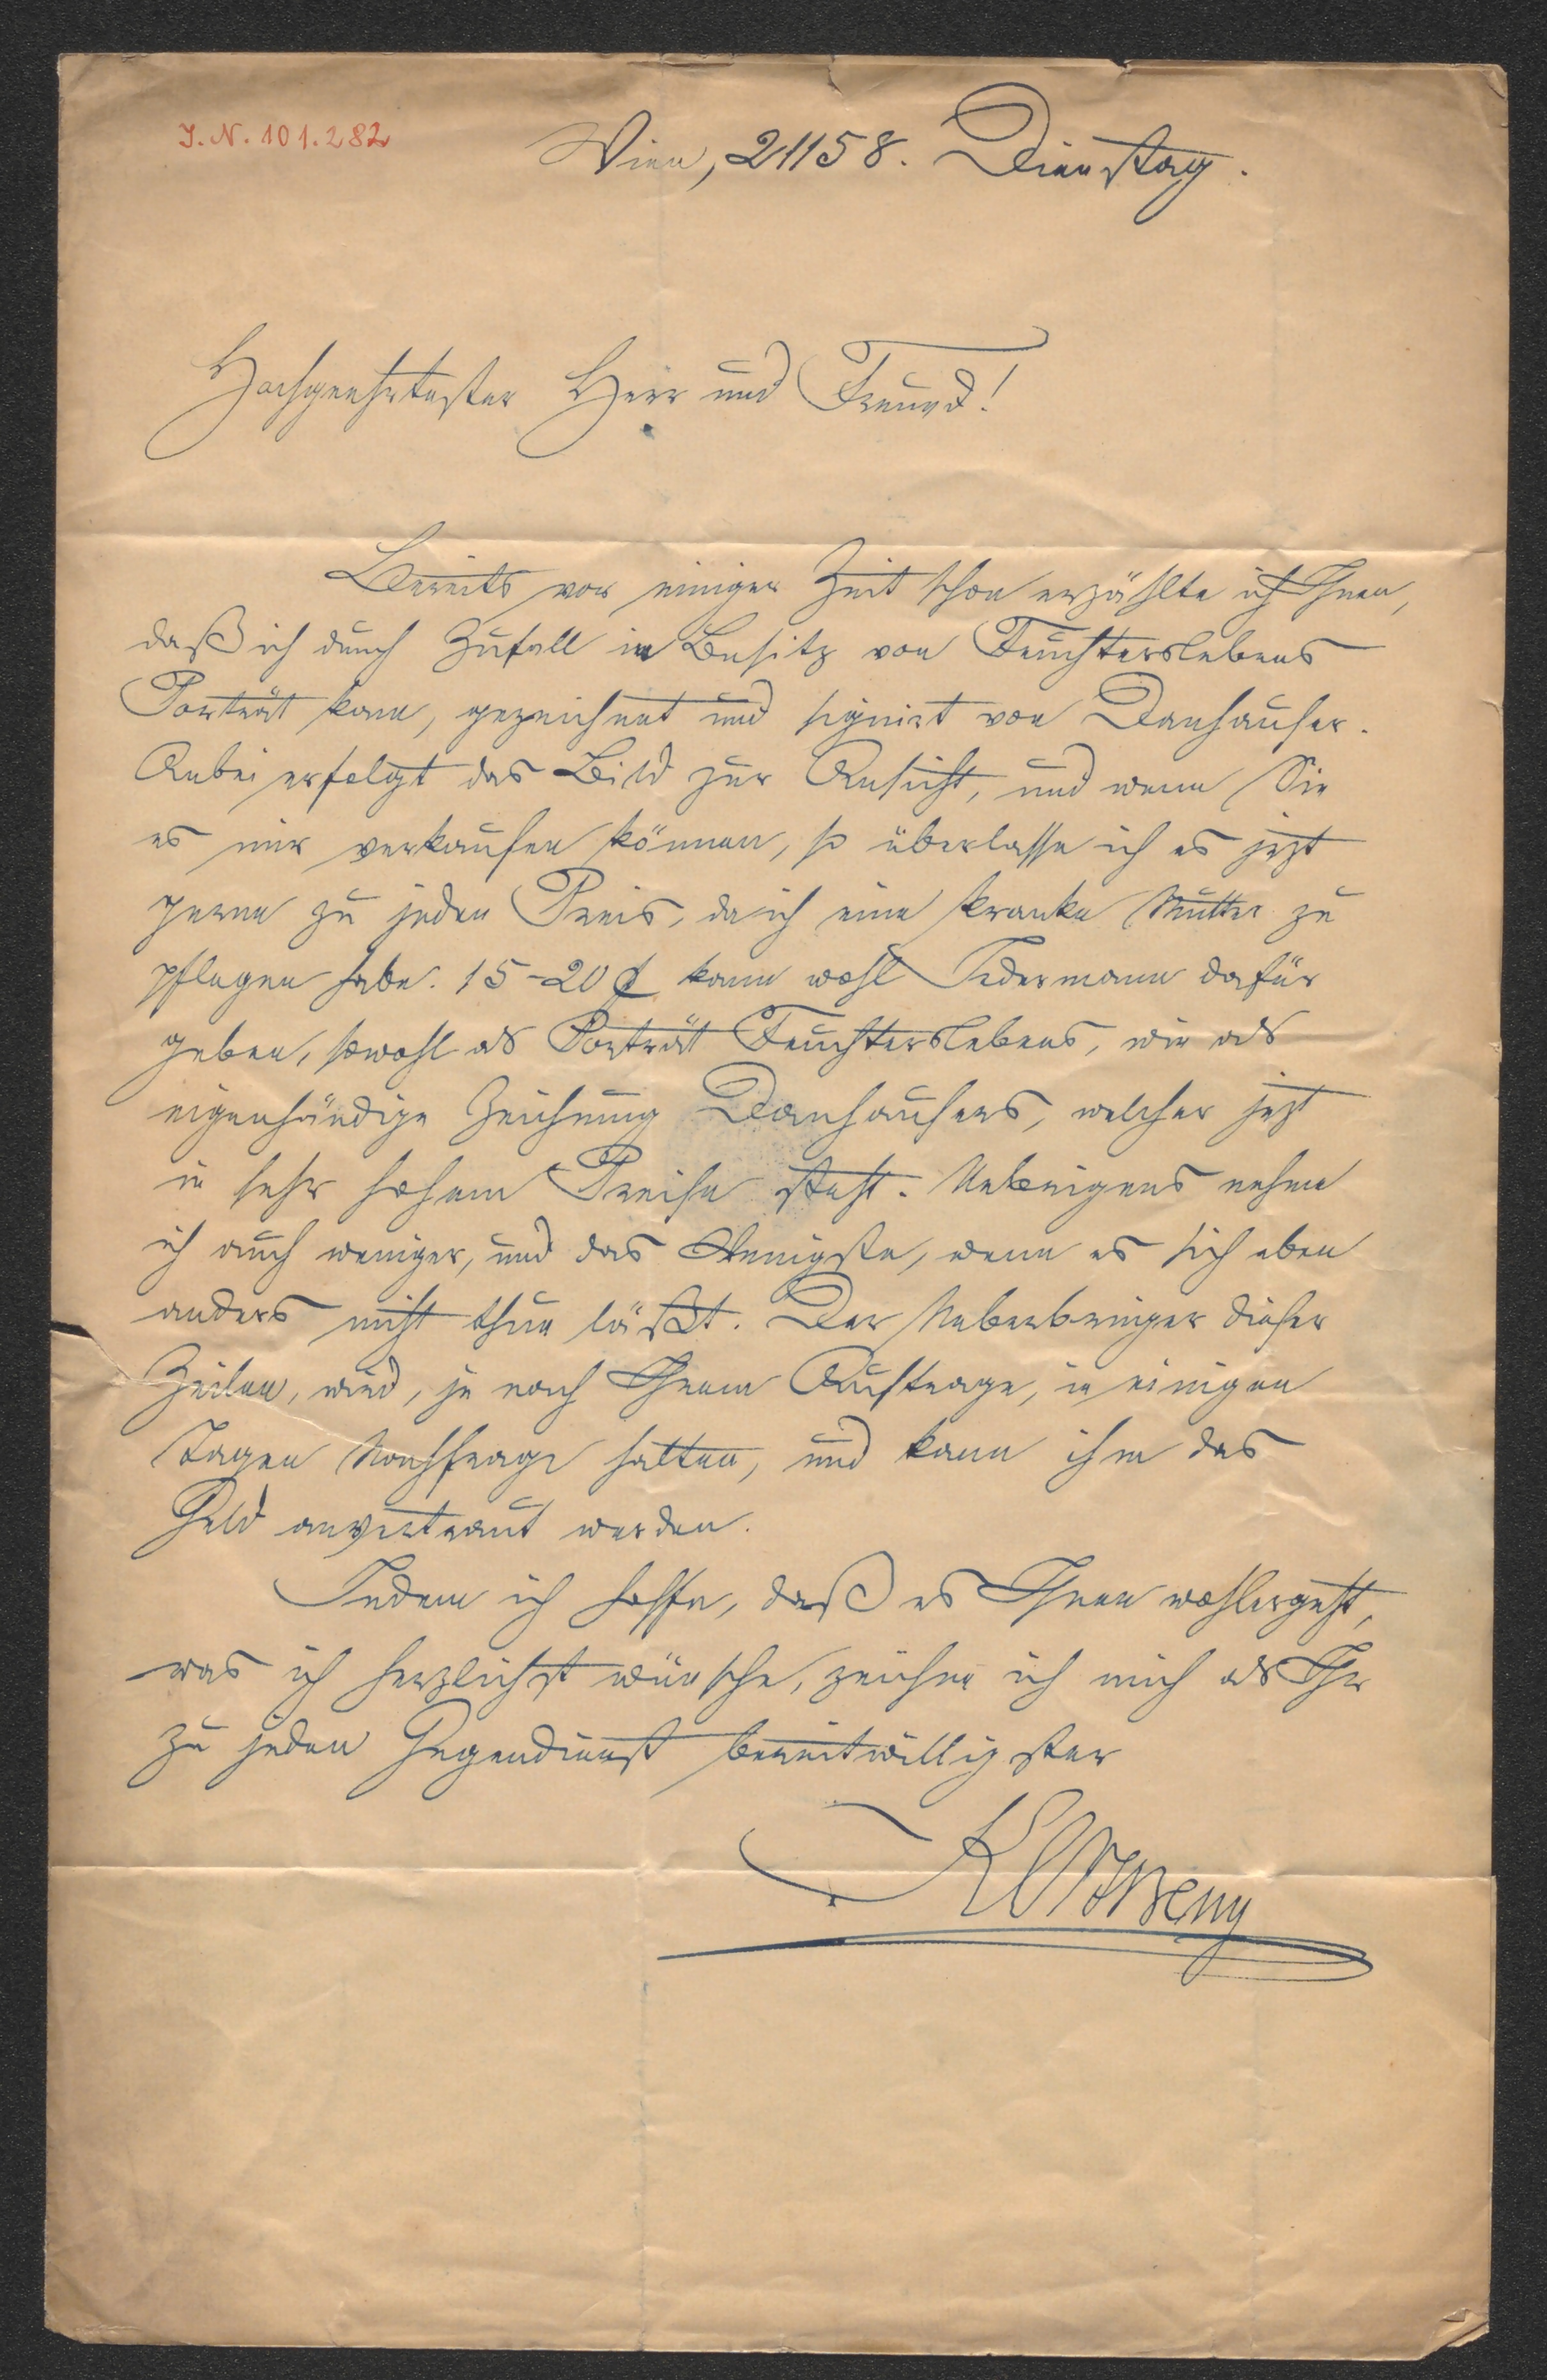 I.N. 101.282
Wien, 21158. Dienstag.
Hochgeehrtester Herr und Freund!
Bereits vor einiger Zeit schon erzählte ich Ihnen,
daß ich durch Zufall in Besitz von Feuchterslebens
Porträt kam, gezeichnet und signirt von Danhauser.
Anbei erfolgt das Bild zur Ansicht, und wenn Sie
es mir verkaufen können, so überlasse ich es jezt
gerne zu jeden Preis, da ich eine kranke Mutter zu
pflegen habe. 15-20 f kann wohl Jedermann dafür
geben, sowohl als Porträt Feuchterslebens, wie als
eigenhändige Zeichnung Danhausers, welcher jezt
in sehr hohem Preise steht. Uebrigens nehme
ich auch weniger, und das Wenigste, wenn es sich eben
anders nicht thun läßt. Der Ueberbringer dieser
Zeilen, wird, je nach Ihrem Auftrage, in einigen
Tagen Nachfrage halten, und kann ihm das
Geld anvertraut werden.
Indem ich hoffe, daß es Ihnen wohlergeht,
was ich herzlichst wünsche, zeichne ich mich als Ihr
zu jeden Gegendienst bereitwilligster